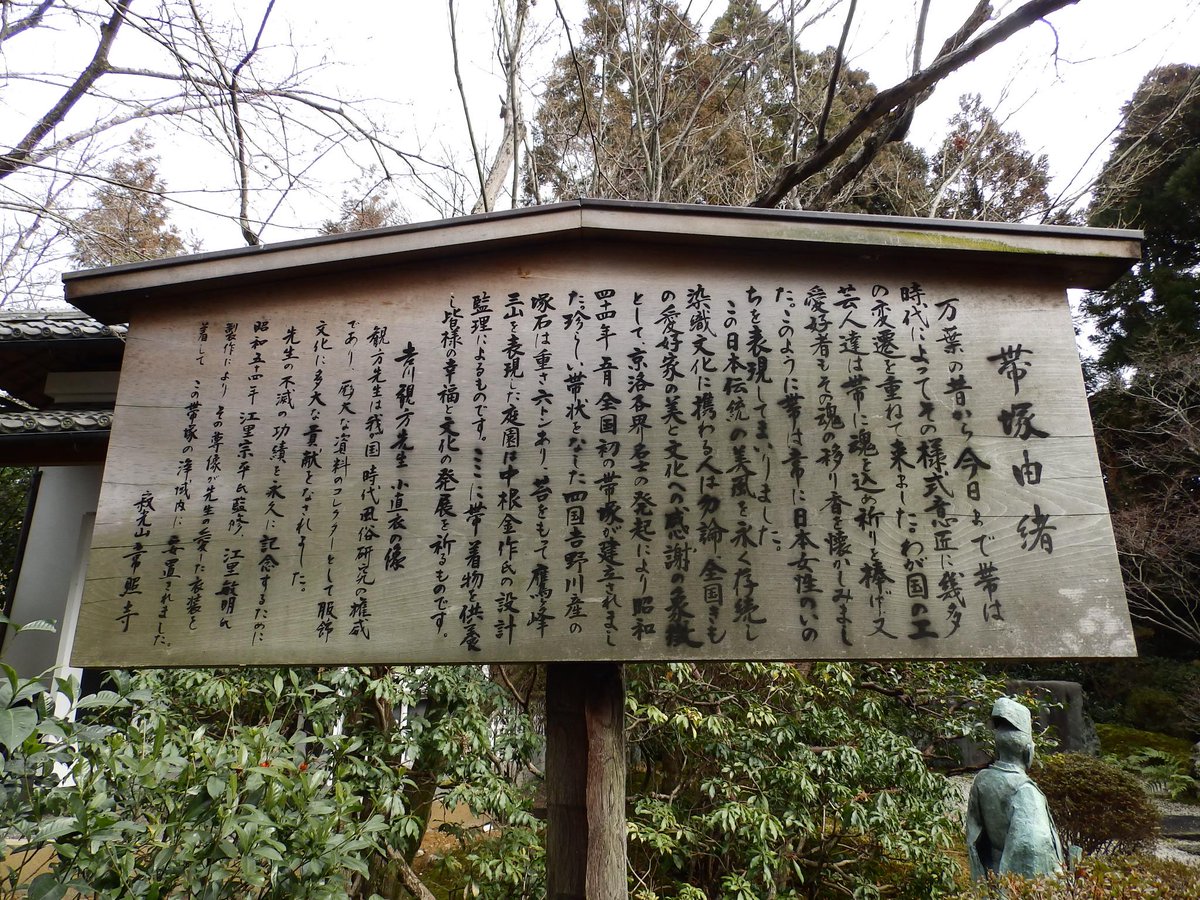 帯塚由緒
万葉の昔から今日まで帯は
時代によってその様式意匠に幾多
の変遷を重ねて来ましたわが国の工
芸人達は帯に魂を込め祈りを捧げ又
愛好者もその魂の移り香を懐かしみまし
た。このように帯は常に日本女性のいの
ちを表現してまいりました。
この日本伝統の美風を永く存続し
染織文化に携わる人は勿論全国きも
の愛好家の美と文化への感謝の象徴
として、京洛各界名士の発起により昭和
四十四年五月全国初の帯塚が建立されまし
た。珍らしい帯状をなした四国吉野川産の
塚石は重さ六トンあり、苔をもて鷹ヶ峰
三山を表現した庭園は中根金作氏の設計
監理によるものです。ここに帯着物を供養
し皆様の幸福と文化の発展を祈るものです。
吉川観方先生小直衣の像
観方先生は我が国時代風俗研究の権威
であり、厖大な資料のコレクターとして服飾
文化に多大な貢献となされました。
先生の不滅の功績を永久に記念するために
昭和五十四年江里宗平氏監修、江里敏明氏
製作によりその尊像が先生の愛した衣装を
着してこの帯塚の浄域内に安置されました。
寂光山常照寺